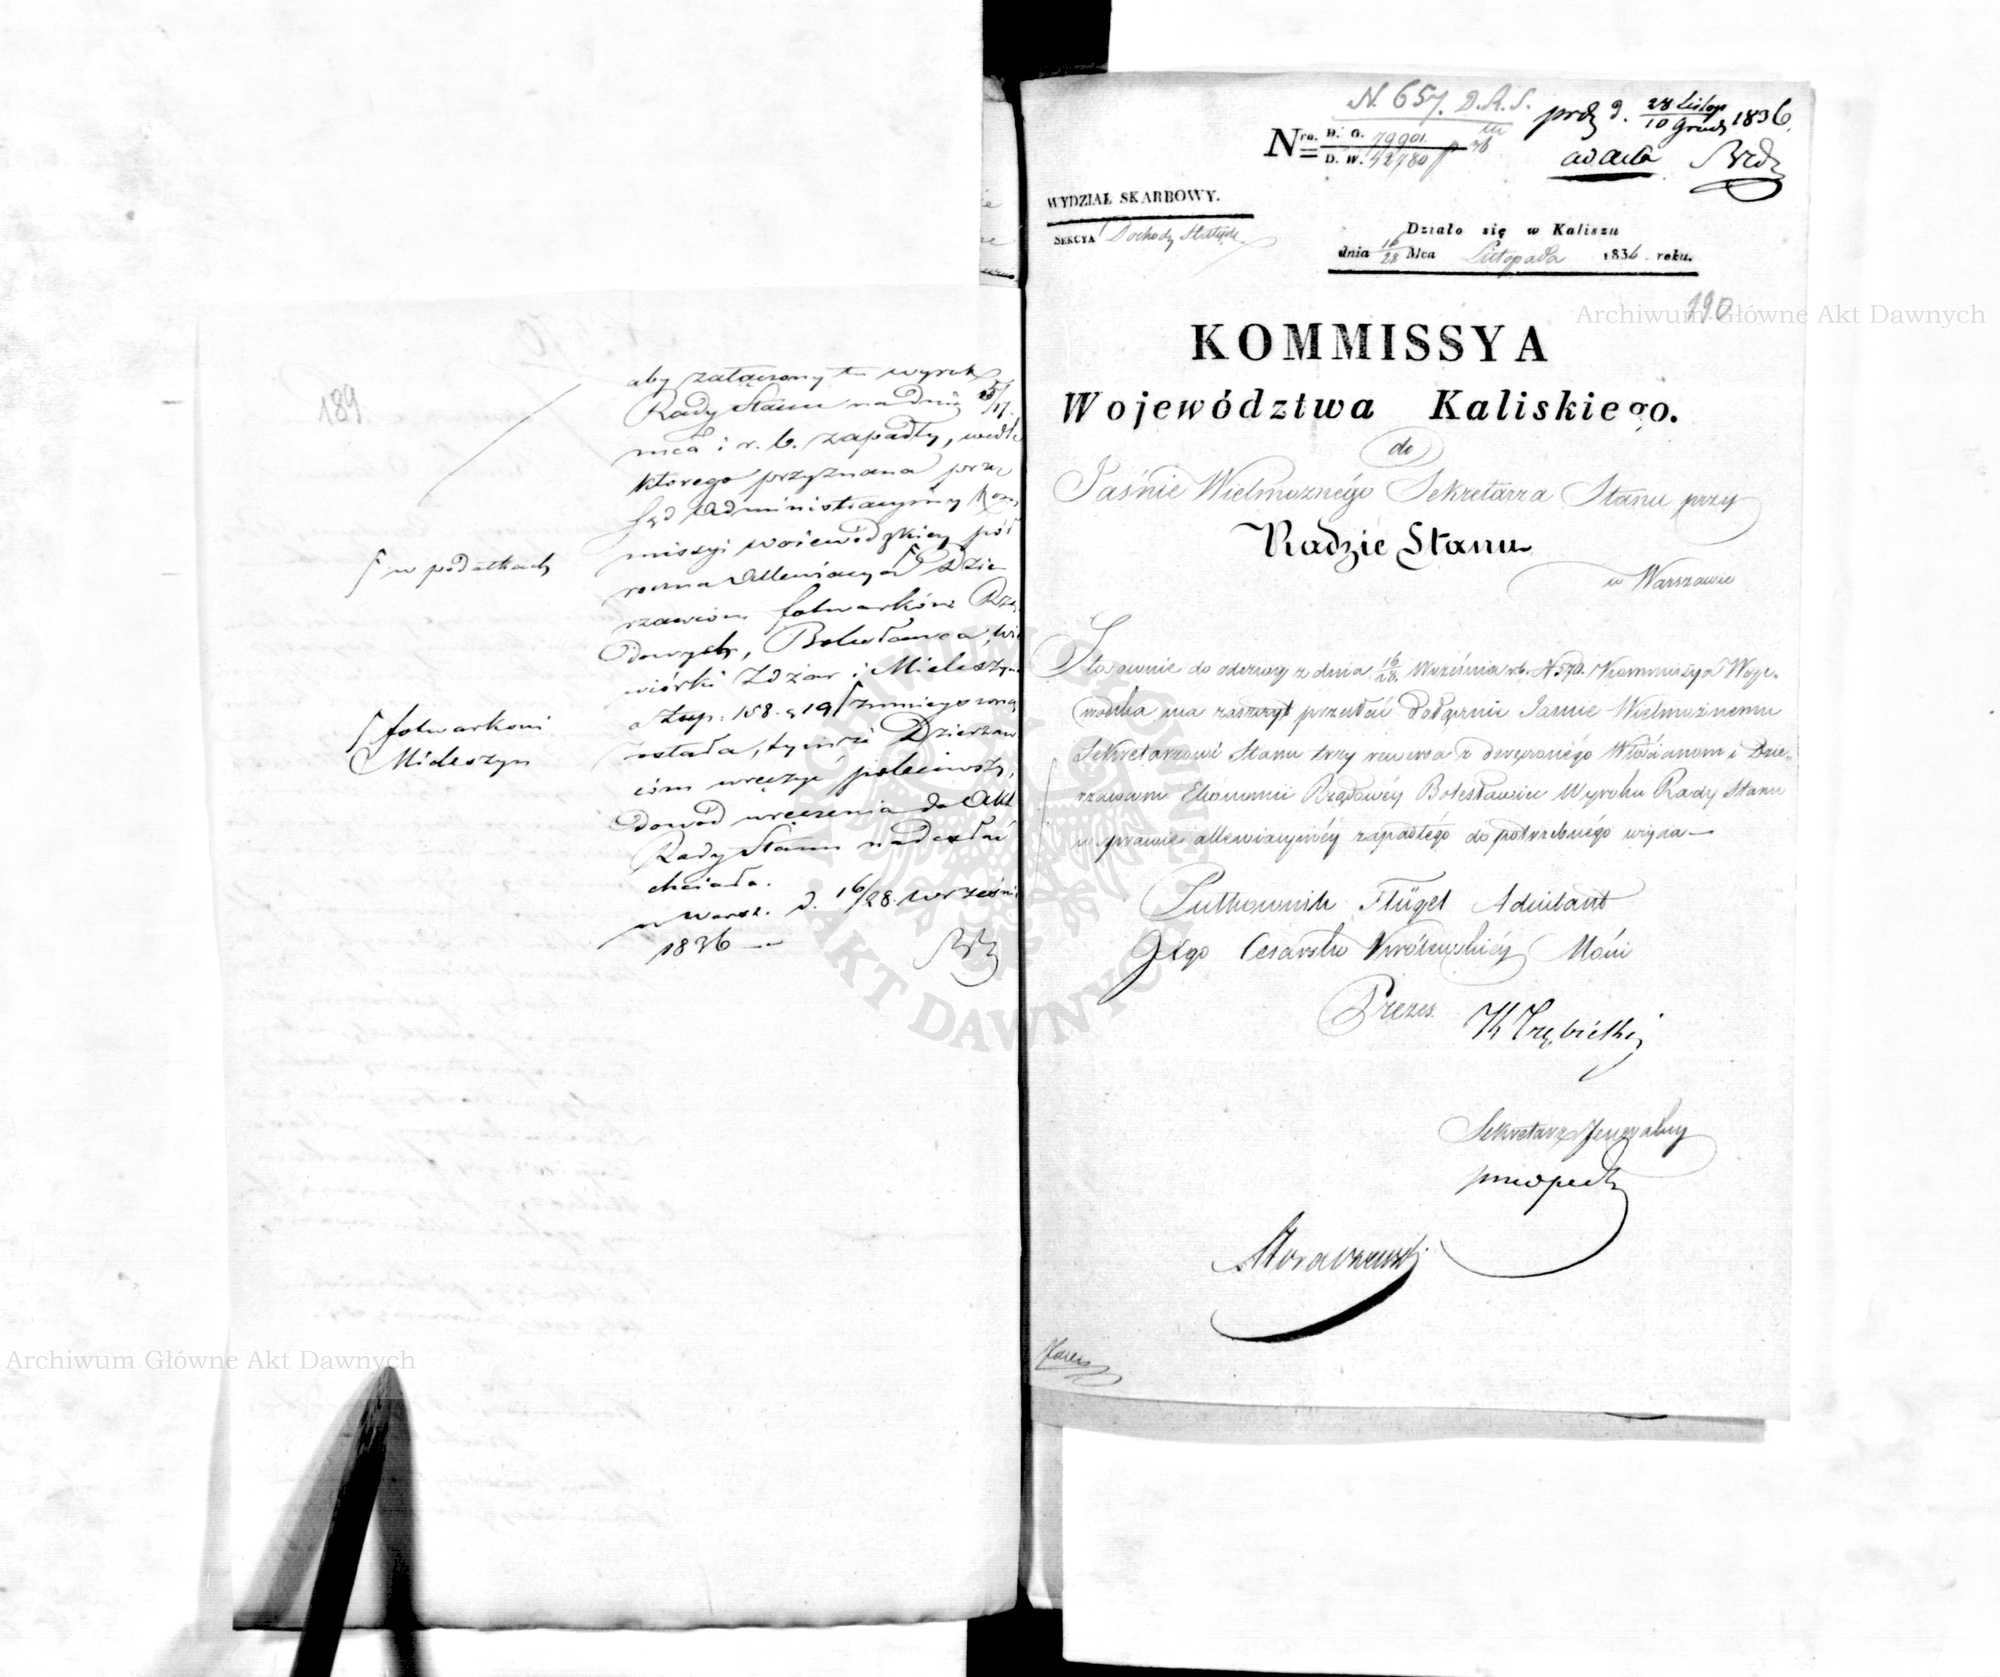 189.
aby załączony tu wyrok
Rady Stanu na dniu 5/17.
mca i r. b. zapadły, wedle
którego przyznana przez
Sąd Administracyjny Kom
missyi woiewódzkiey pół
roczna Allewiacya ⌈ Dzie
rzawcom folwarków Rzą
dowych, Bolesławca, Wie
wiórki Zdżar i Mieleszyn
a złup: 158. g 19 ⌈ zmnieyszoną
została, tymże Dzierzaw
com wręczyć poleciwszy,
dowód wręczenia do Akt
Rady Stanu nadesłać
chciała.
w Warsz. d. 16/28. wrześni
1836
⌈ w podatkach
⌈ folwarkowi
Mieleszyn
N. 657. D.R.S.
Nro. D. G. 79901.
D. W. 42780
prdz d. 28 Listop/10 Grud 1836.
ad acta
WYDZIAŁ SKARBOWY.
SEKCYA Dochody Stałych
Działo się w Kaliszu
dnia 16/28 Mca Listopada 1836 roku.
190
KOMMISSYA
Województwa Kaliskiego.
do
Jaśnie Wielmożnego Sekretarza Stanu przy
Radzie Stanu
w Warszawie
Stosownie do odezwy z dnia 16/28. Września r.b. N 570. Kommissya Woje-
wódzka ma zaszczyt przesłać dołącznie Jaśnie Wielmożnemu
Sekretarzowi Stanu trzy rewersa z doręczonego Włościanom i Dzie-
rzawcom Ekonomii Rządowéy Bolesławiec Wyroku Rady Stanu
w sprawie allewiacyinéy zapadłego do potrzebnego użycia
Pułkownik Flügel Adiutant
Jego Cesarsko Królewskiéy Mości
Prezes.
Sekretarz Jeneralny
Archiwum Główne Akt Dawnych
Archiwum Główne Akt Dawnych
ARCHIWUM GŁÓWNE AKT DAWNYCH